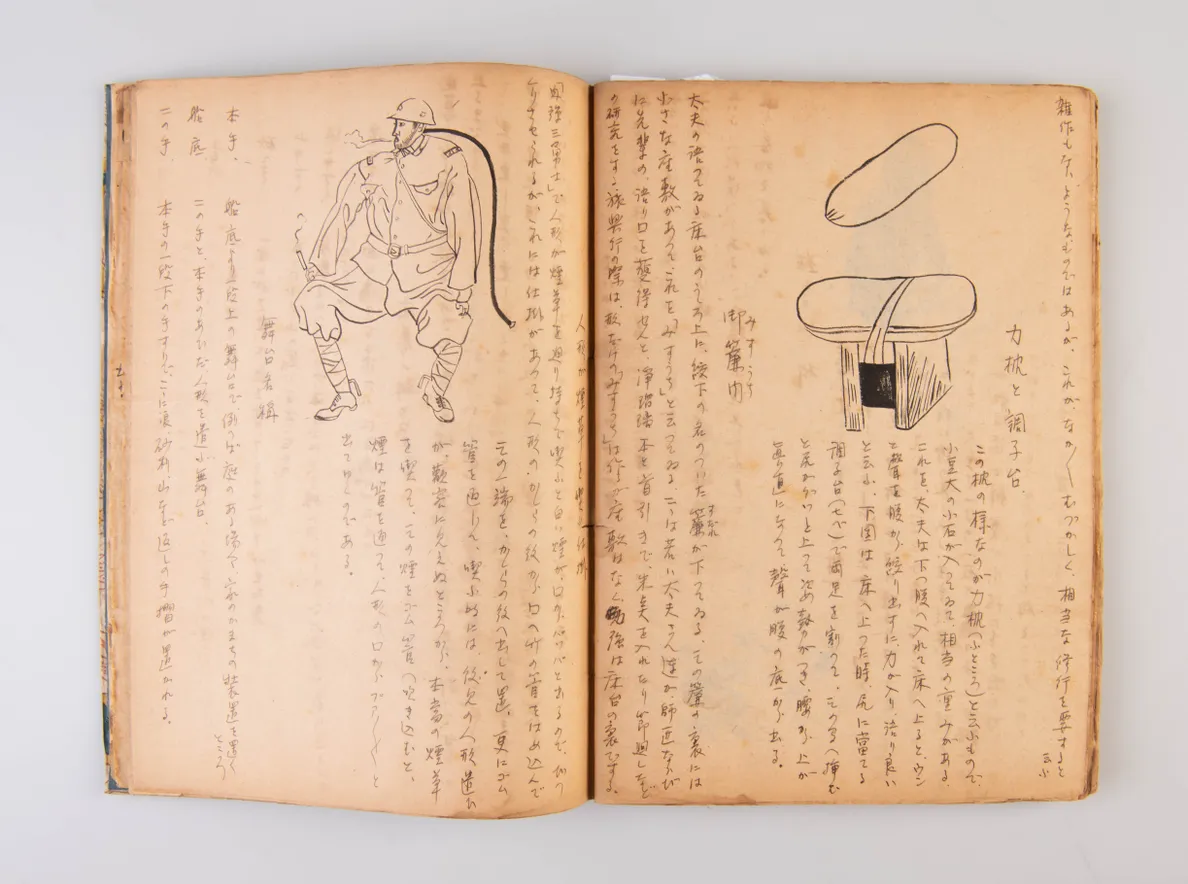 雑作もないようなものではあるが、これが、なか〱むづかしく、相当な修行を要すると云ふ
力枕と調子台
この枕の様なのが力枕(ふところ)と云ふもので、
小豆大の小石が入つてゐて、相当の重みがある。
これを、太夫は下つ腹へ入れて床へ上ると、ウン
と聲を腹から絞り出すに力が入り語り良い
と云ふ。下図は、床へ上つた時、尻に當てる
調子台(七ベ)で両足を割つて、この写へ挿む
と尻がグイと上つて
真直になつて聲が腹の底から出る。
みすうち
御簾内
太夫の語つてゐる床台のうち上に、紋下の名のついた簾が下つてゐる。その簾の裏には
すだれ
小さな座敷があつて、これを「みすうち」と云つてゐる。こゝは若い太夫さん達が師匠ならび
に先輩の、語り口を藝得せんと、浄瑠璃本と首引きで、朱美を入れたり節廻しなど
の研究をする。旅興行の際は形だけの「みすうち」は作るが座敷はなく勉強は床台の裏でする。
人形が煙草を喫ふ仕掛
三勇士」で人形が煙草を廻り持ちで喫ふと白い煙が、口からパッパと出るので、びつ
くりさせられるが、これには仕掛があつて、人形のかしらの後から口へ竹の管をはめ込んで
その一端を、かしらの後へ出して置、更にゴム
管を通して、喫ふ時には、後見の人形遣ひ
が、観客に見えぬところから、本當の煙草
を喫つて、その煙をゴム管へ吹き込むと、
煙は管を通つて、人形の口からプーツと
出てゆくのである。
舞台名稱
本手、 船底より一段上の舞台で、例へば庭のある場合、家のかまちの装置を置くところ
船底 二の手と、本手のあひだ、人形を遣ふ舞台。
二の手、 本手の一段下の手すりで、こゝに浪、砂利、山など返しの手摺が置かれる。